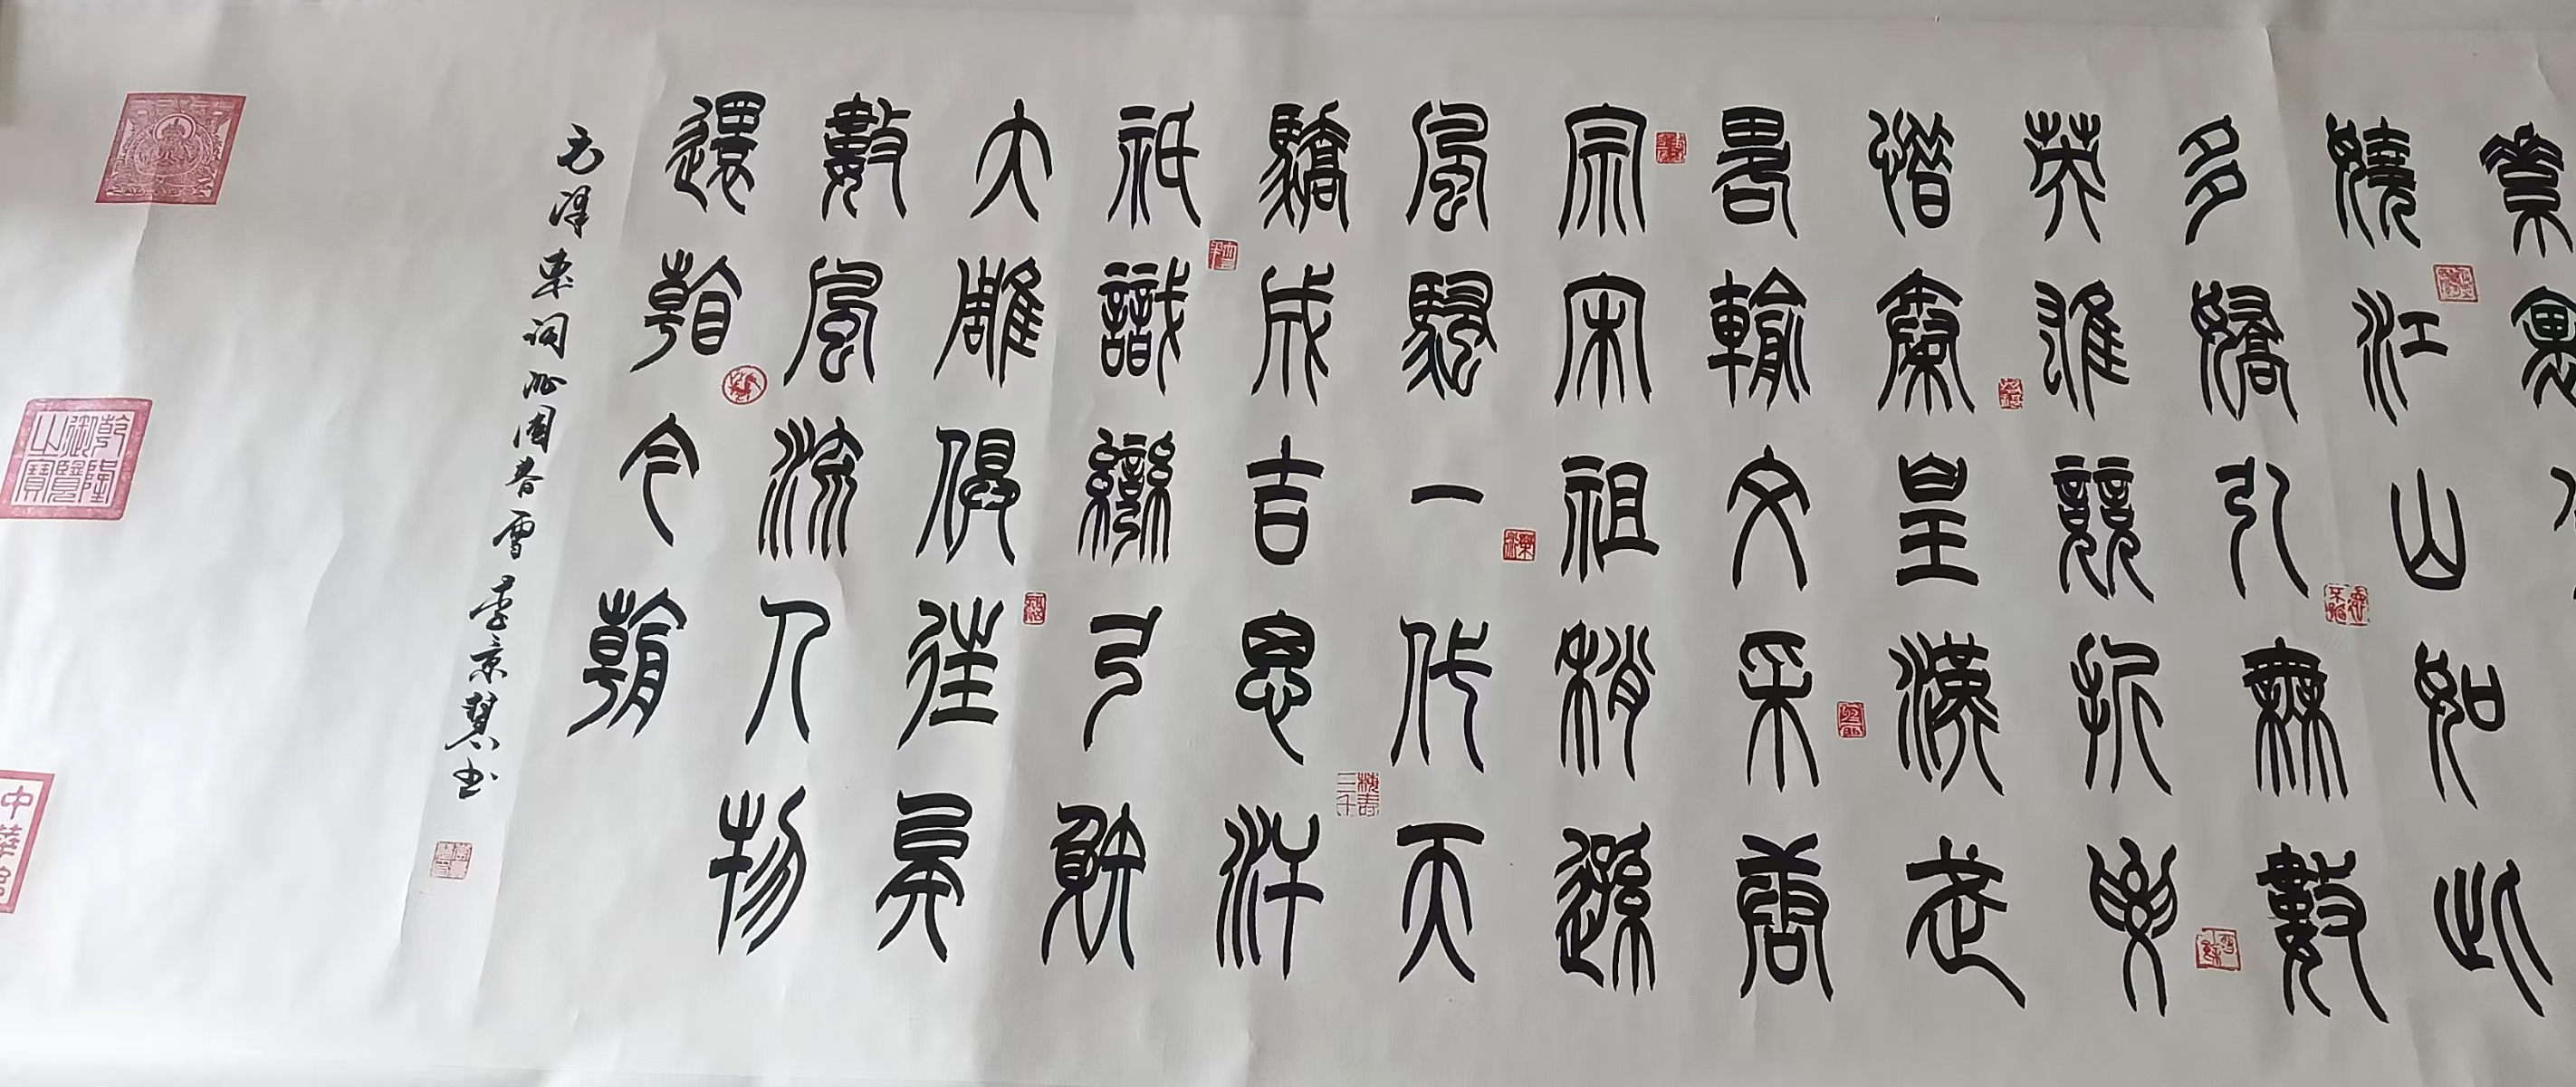 素裹
嬈江山如此
多嬌引無數
英雄競折要
惜秦皇漢武
畧輸文采唐
宗宋祖稍遜
風騷一代天
驕成吉思汗
祇識彎弓射
大雕俱往矣
數風流人物
還看今朝
毛澤東词沁園春雪李景慧书
乾隆御覽之寶
中華